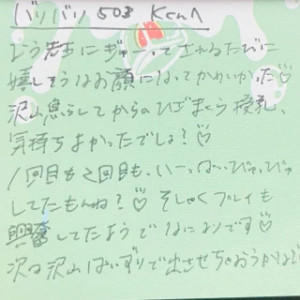 バリバリ503 Kenへ
どう先生にぎゅーってされるたびに
嬉しそうなお顔になってかわいかった♡
沢山焦らしてからのひざまくら授乳、
気持ちよかったでしょ？♡
1回目も2回目も、いーっぱいびゅっびゅ
してたもんね？♡ そしゃくプレイも
興奮してたようでなによりです♡
次は沢山ぱいずりで出させちゃおうかな